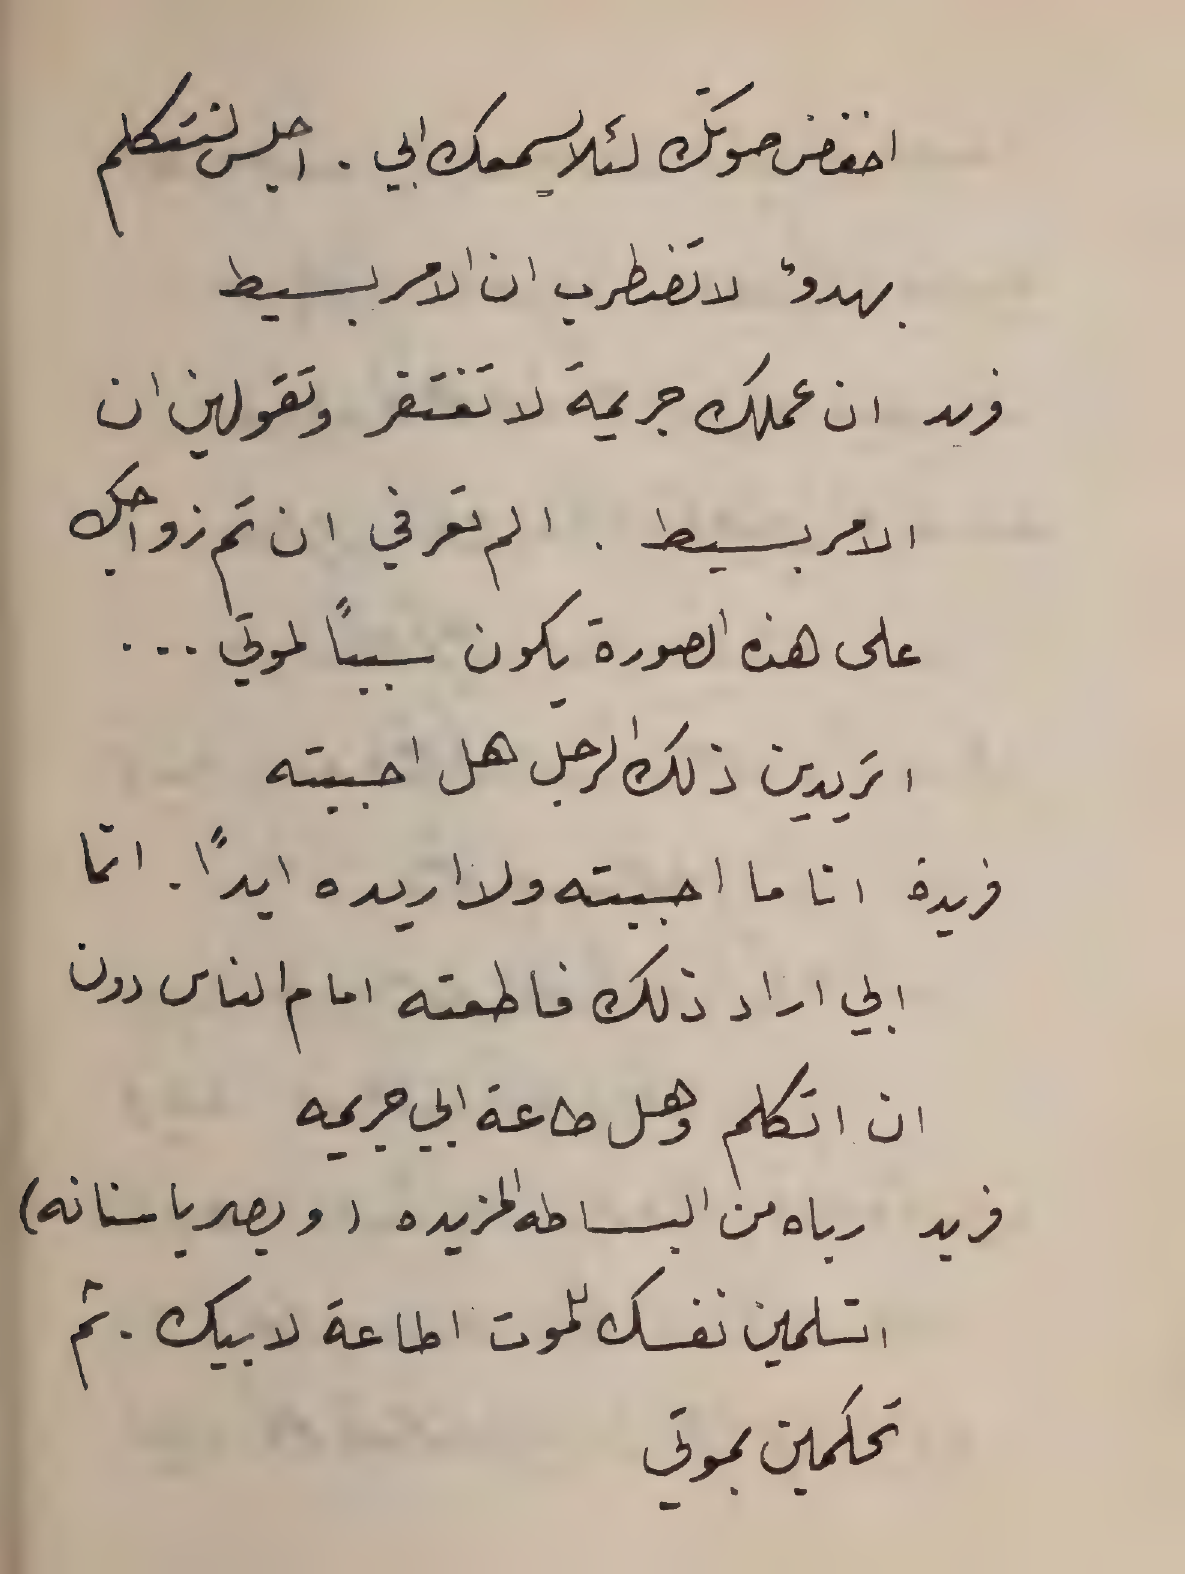 اخفض صوتك لئلا يسمعك ابي . اجلس لنتكلم
بهدوء لا تضطرب ان الامر بسيط
فريد ان عملك جريمة لا تغتفر وتقولين ان
الامر بسيط . الم تعرفي ان تم زواجك
على هذه الصورة يكون سبباً لموتي ...
اتريدين ذلك الرجل هل احببته
فريدة انا ما احببته ولا اريده ابداً . انما
ابي اراد ذلك فاطعته امام الناس دون
ان اتكلم وهل طاعة ابي جريمه
فريد رباه من البساطه المزيده ( ويصر باسنانه )
اتسلمين نفسك للموت اطاعة لابيك . ثم
تحكمين بموتي